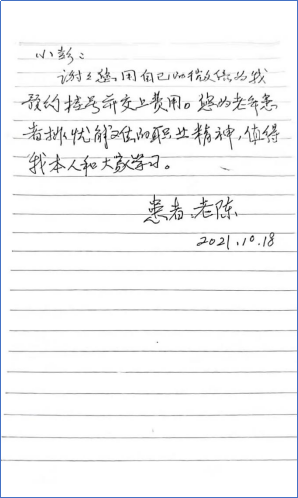 小彭：
谢谢您,用自己的微信为我
预约挂号并交上费用。您为老年患
者排忧解难的职业精神,值得
我本人和大家学习。
患者,老陈
2021.10.18